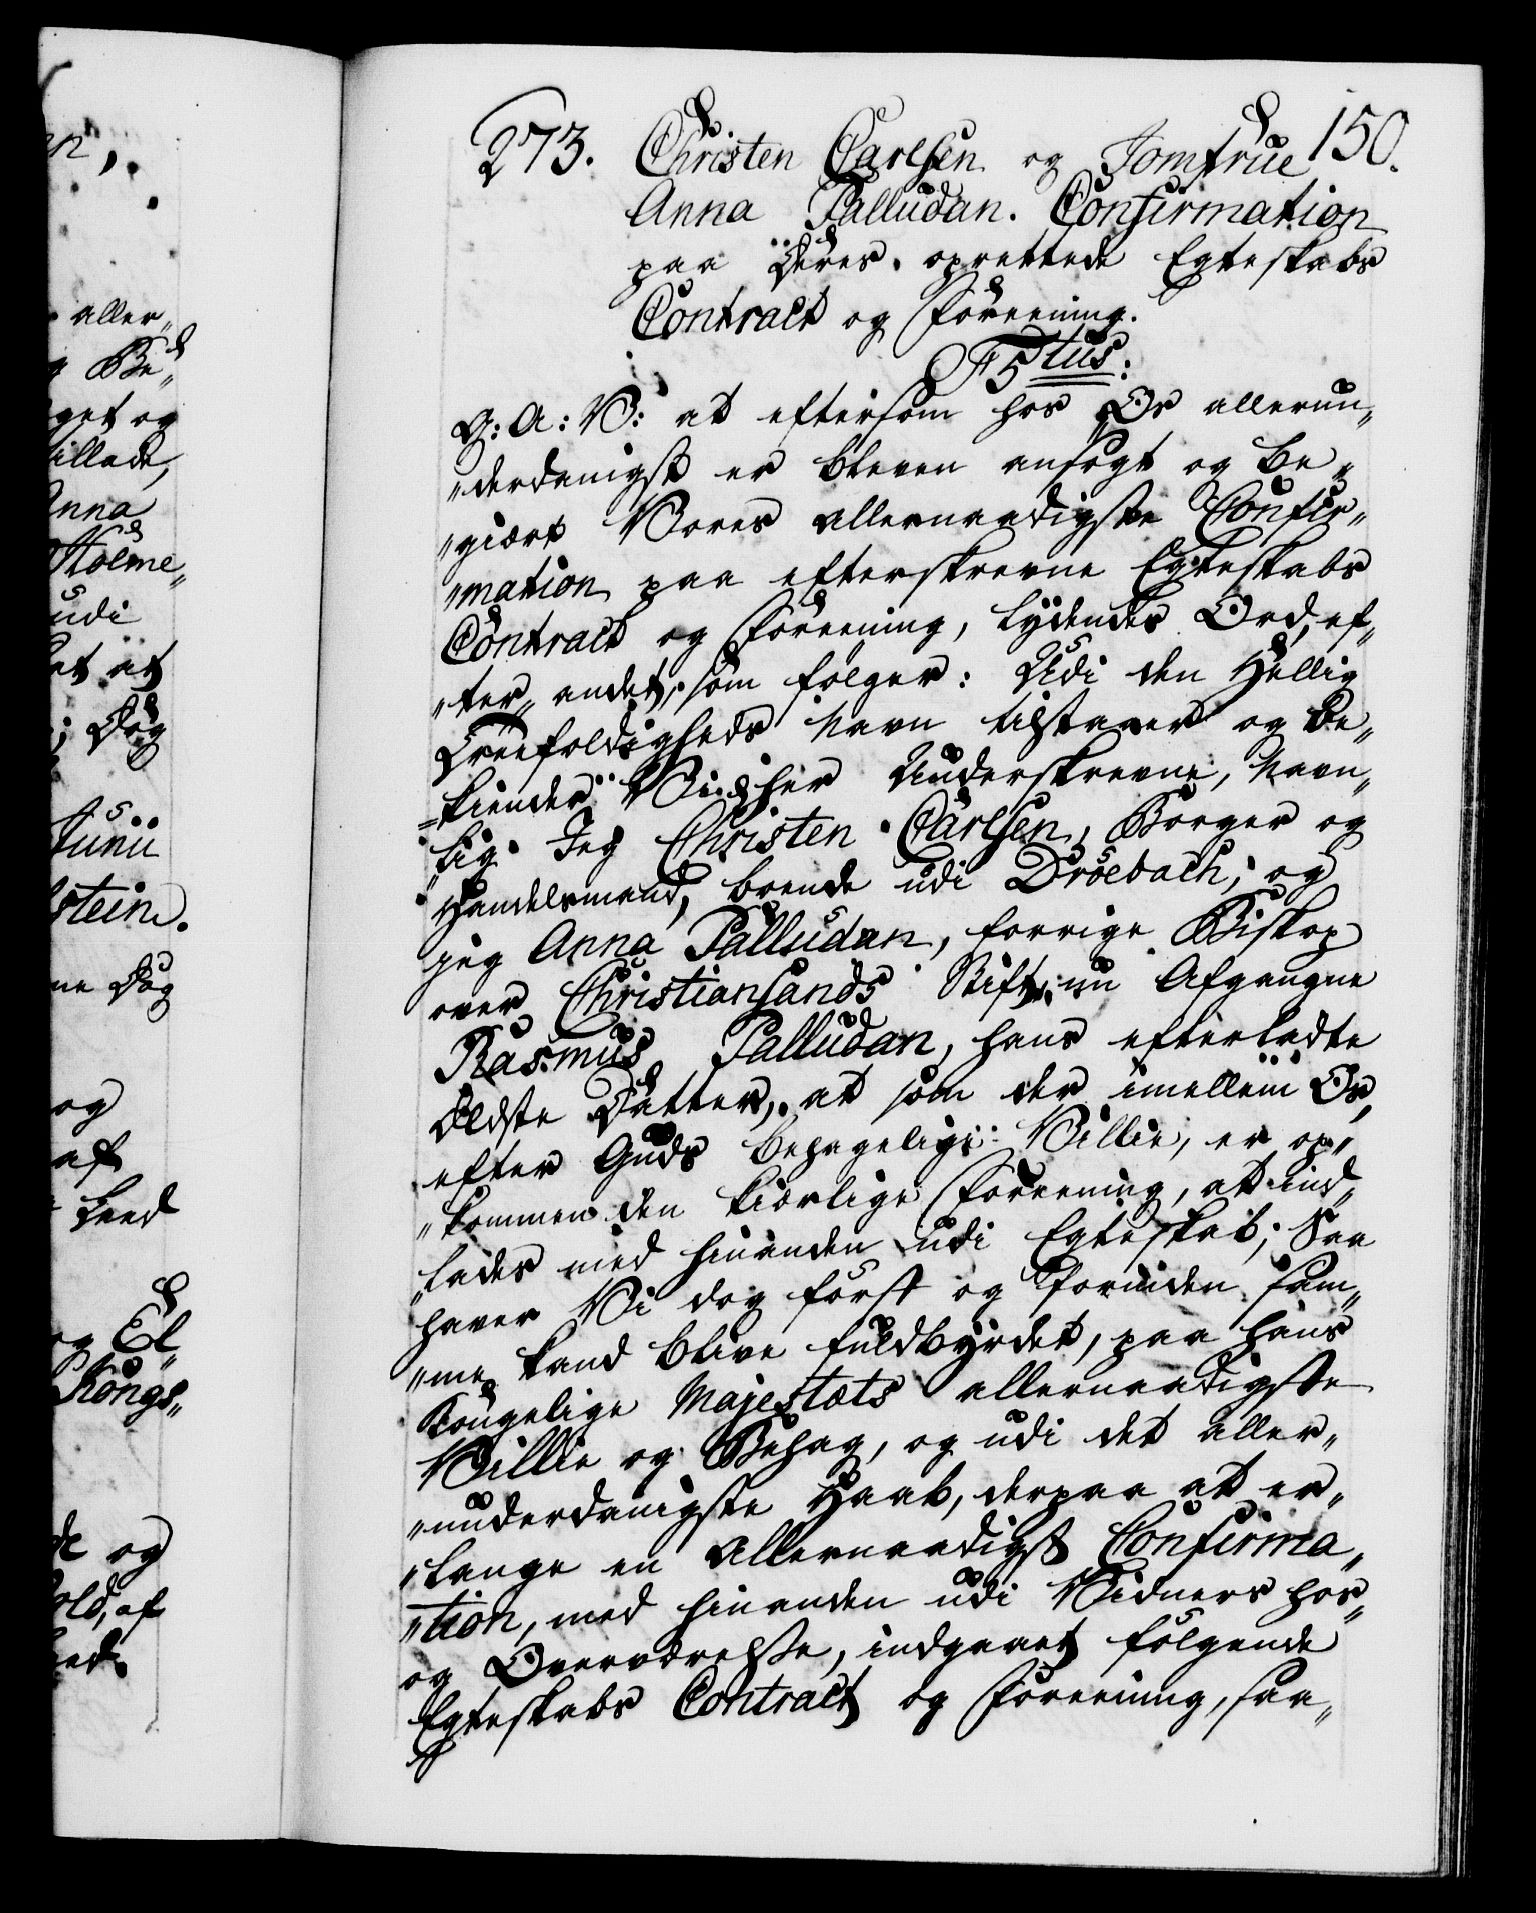 273. Christen Carlsen og Jomfrue 150.
Anna Palludan. Confirmation
paa deres oprettede Egteskabs
Contract og Foreening.
F5tus:
G: A: V: at eftersom hos Os allerun„
„derdanigst er bleven ansøgt og be„
„giært Vores allernaadigste Confir„
„mation paa efterskrevne Egteskabs
Contract og Foreening, lydendes Ord, ef„
„ter andet, som følger: Udi den Hellig
Treefoldigheds Navn tilstaaer og be„
„kiender Vi her Underskrevne, Navn„
„lig Jeg Christen Carlsen, Borger og
Handelsmand, boende udi Dröebach, og
jeg Anna Palludan, forrige Biskop
over Christiansands Stift, nu Afgangne
Rasmus Palludan, hans efterladte
Eldste Datter, at som der imellem Os,
efter Guds behagelige Villie, er op„
„kommen den kiærlige Foreening, at ind„
„lades med hinanden udi Egteskab; Saa
haver Vi dog først og forinden sam„
„me kand blive fuldbyrdet, paa hans
Kongelige Majestæts allernaadigste
Villie og Behag, og udi det aller„
„underdanigste Haab, derpaa at er„
„lange en Allernaadigst Confirma„
„tion, med hinanden udi Vidners hos„
og Overværelse, indgaaet følgende
Egteskabs Contract og Foreening, saa„